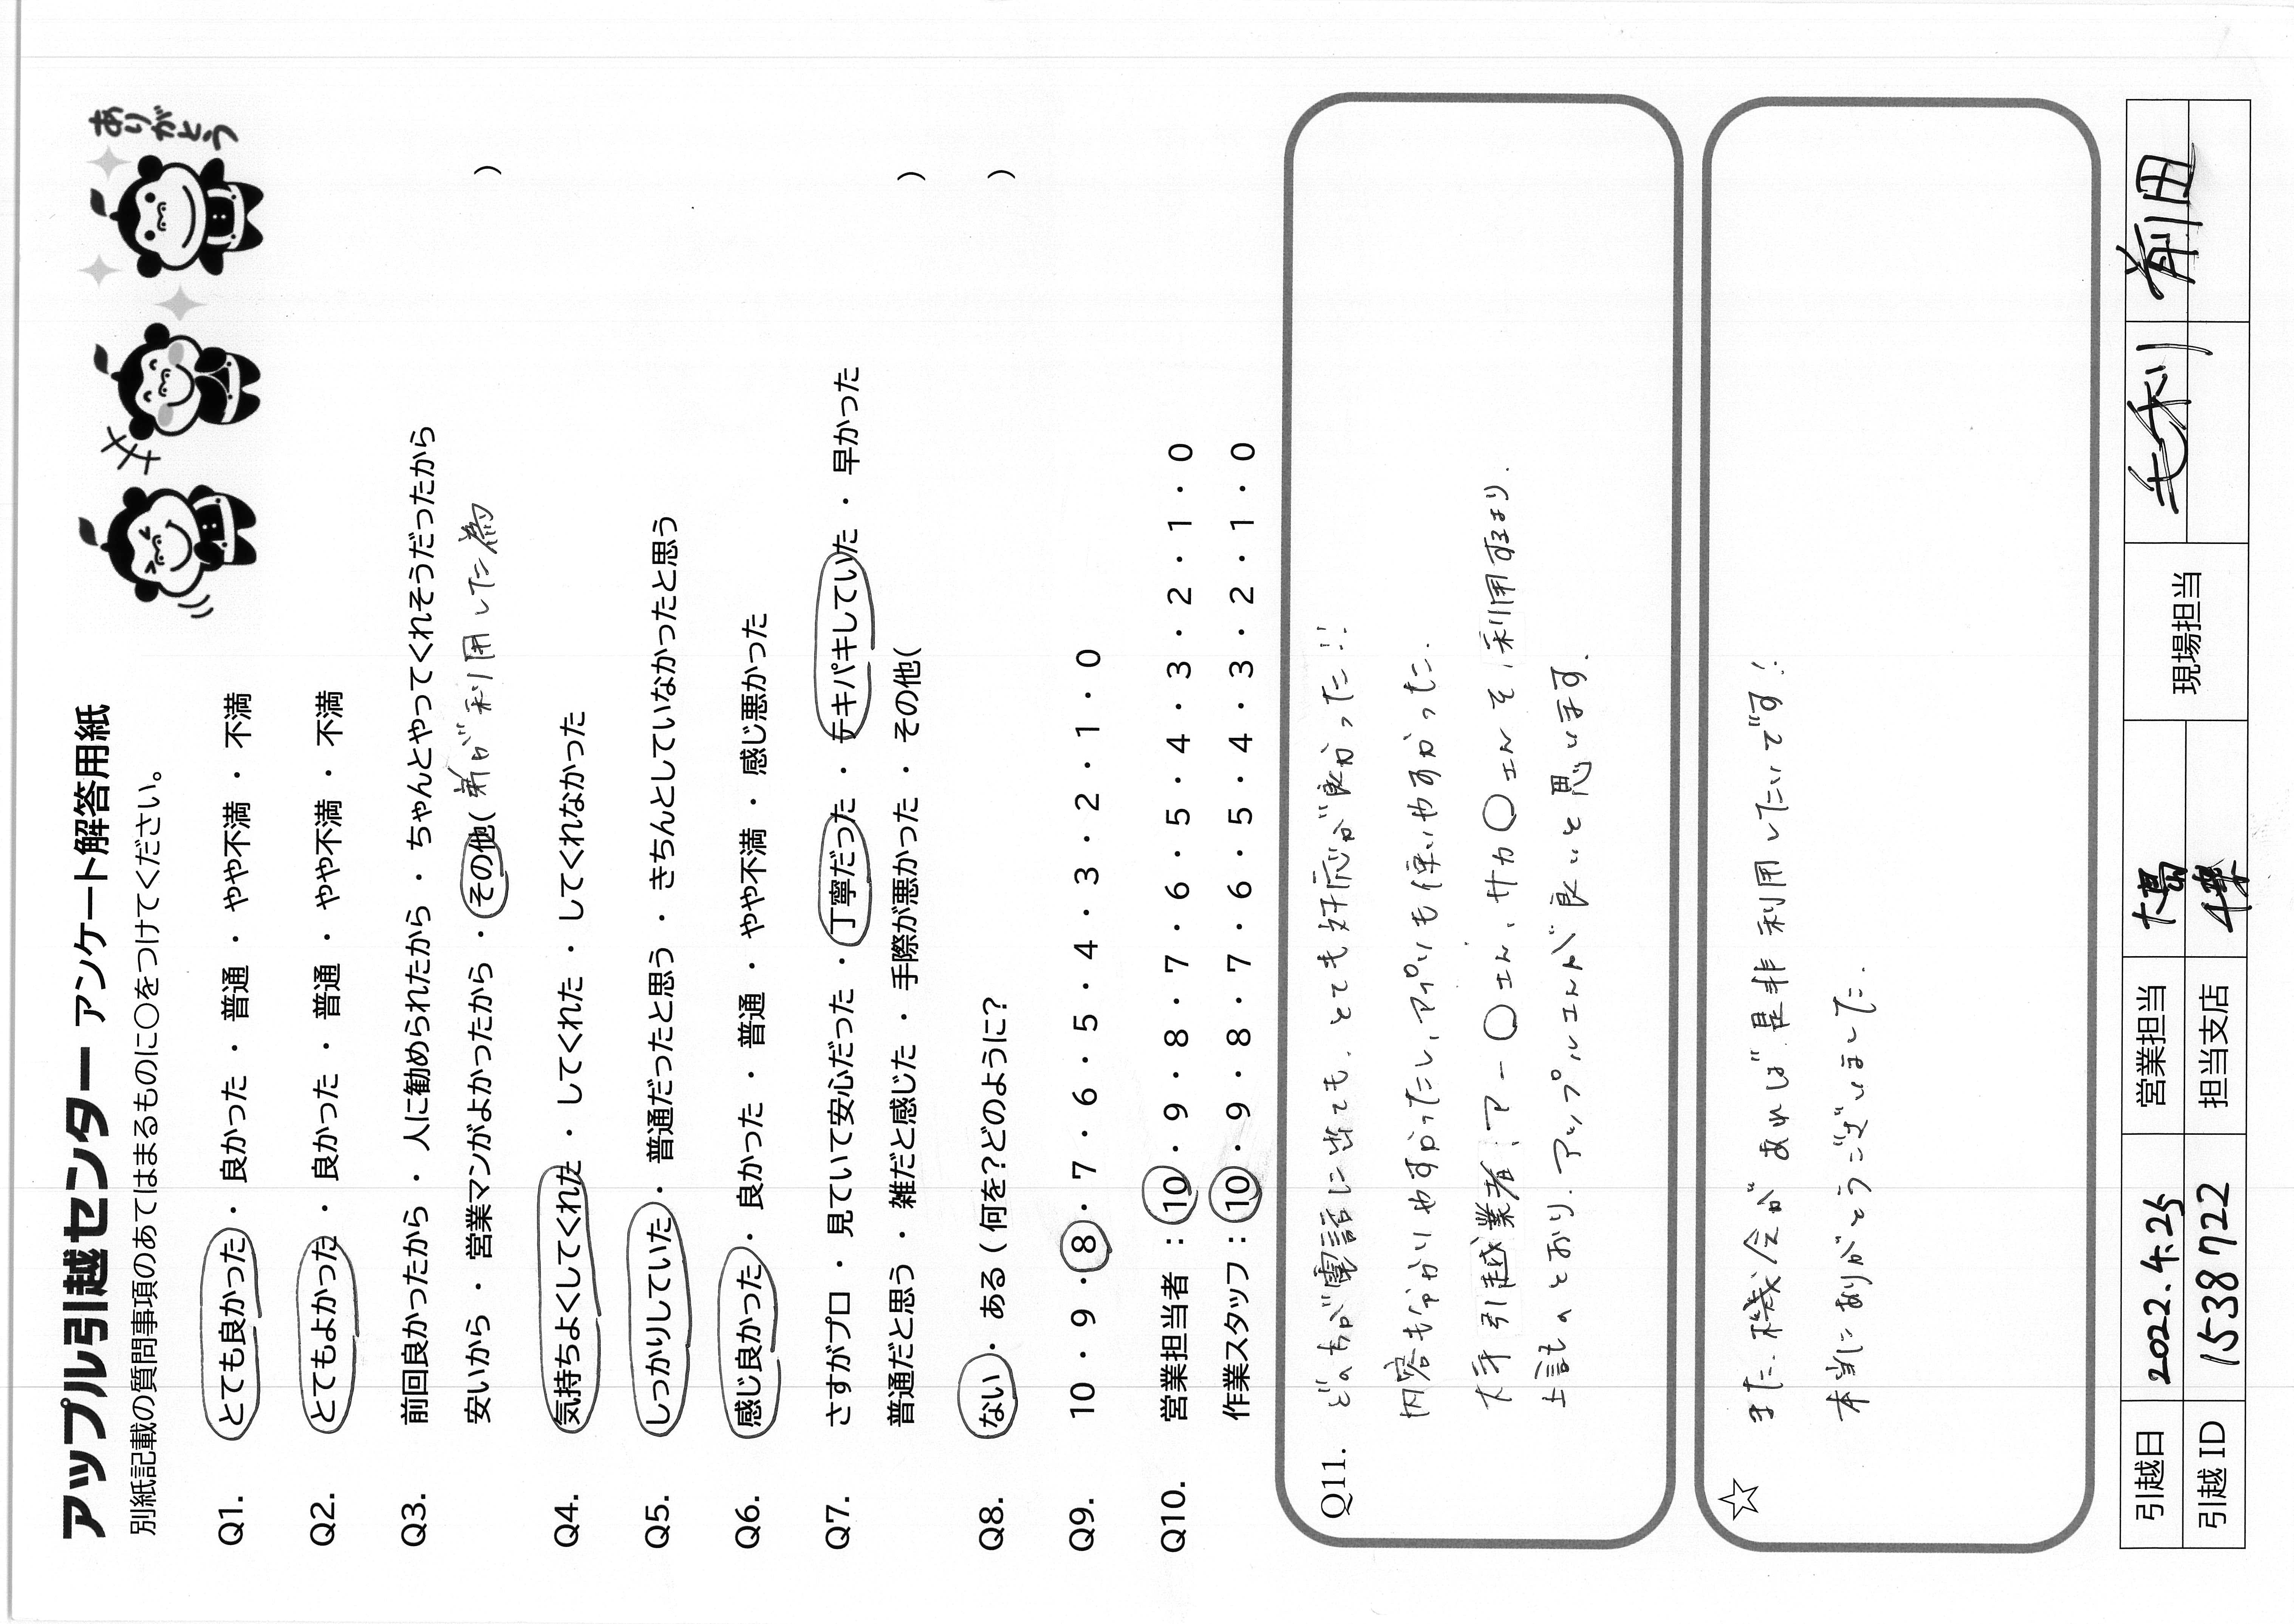 アップル引越センター アンケート解答用紙
ありがとう
別紙記載の質問事項のあてはまるものに○をつけてください。
Q1. とても良かった ・ 良かった ・ 普通 ・ やや不満 ・ 不満
Q2. とてもよかった ・ 良かった ・ 普通 ・ やや不満 ・ 不満
Q3. 前回良かったから ・ 人に勧められたから ・ ちゃんとやってくれそうだったから
安いから ・ 営業マンがよかったから ・ その他( 弟が利用した為 )
Q4. 気持ちよくしてくれた ・ してくれた ・ してくれなかった
Q5. しっかりしていた ・ 普通だったと思う ・ きちんとしていなかったと思う
Q6. 感じ良かった ・ 良かった ・ 普通 ・ やや不満 ・ 感じ悪かった
Q7. さすがプロ ・ 見ていて安心だった ・ 丁寧だった ・ テキパキしていた ・ 早かった
普通だと思う ・ 雑だと感じた ・ 手際が悪かった ・ その他( )
Q8. ない ・ ある ( 何を?どのように? )
Q9. 10 ・ 9 ・ 8 ・ 7 ・ 6 ・ 5 ・ 4 ・ 3 ・ 2 ・ 1 ・ 0
Q10. 営業担当者 : 10 ・ 9 ・ 8 ・ 7 ・ 6 ・ 5 ・ 4 ・ 3 ・ 2 ・ 1 ・ 0
作業スタッフ : 10 ・ 9 ・ 8 ・ 7 ・ 6 ・ 5 ・ 4 ・ 3 ・ 2 ・ 1 ・ 0
Q11. どの方が電話に出ても、とても対応が良かった!!
内容も分かりやすかったし、アプリも使いやすかった.
大手引越業者:アー○さん、サカ○さんを利用するより
上記のとおり、アップルさんが良いと思います.
☆ また機会があれば是非利用したいです!
本当にありがとうございました.
引越日 2022.4.25 営業担当 大髙 現場担当 毛利 前田
引越ID 1538722 担当支店 千葉